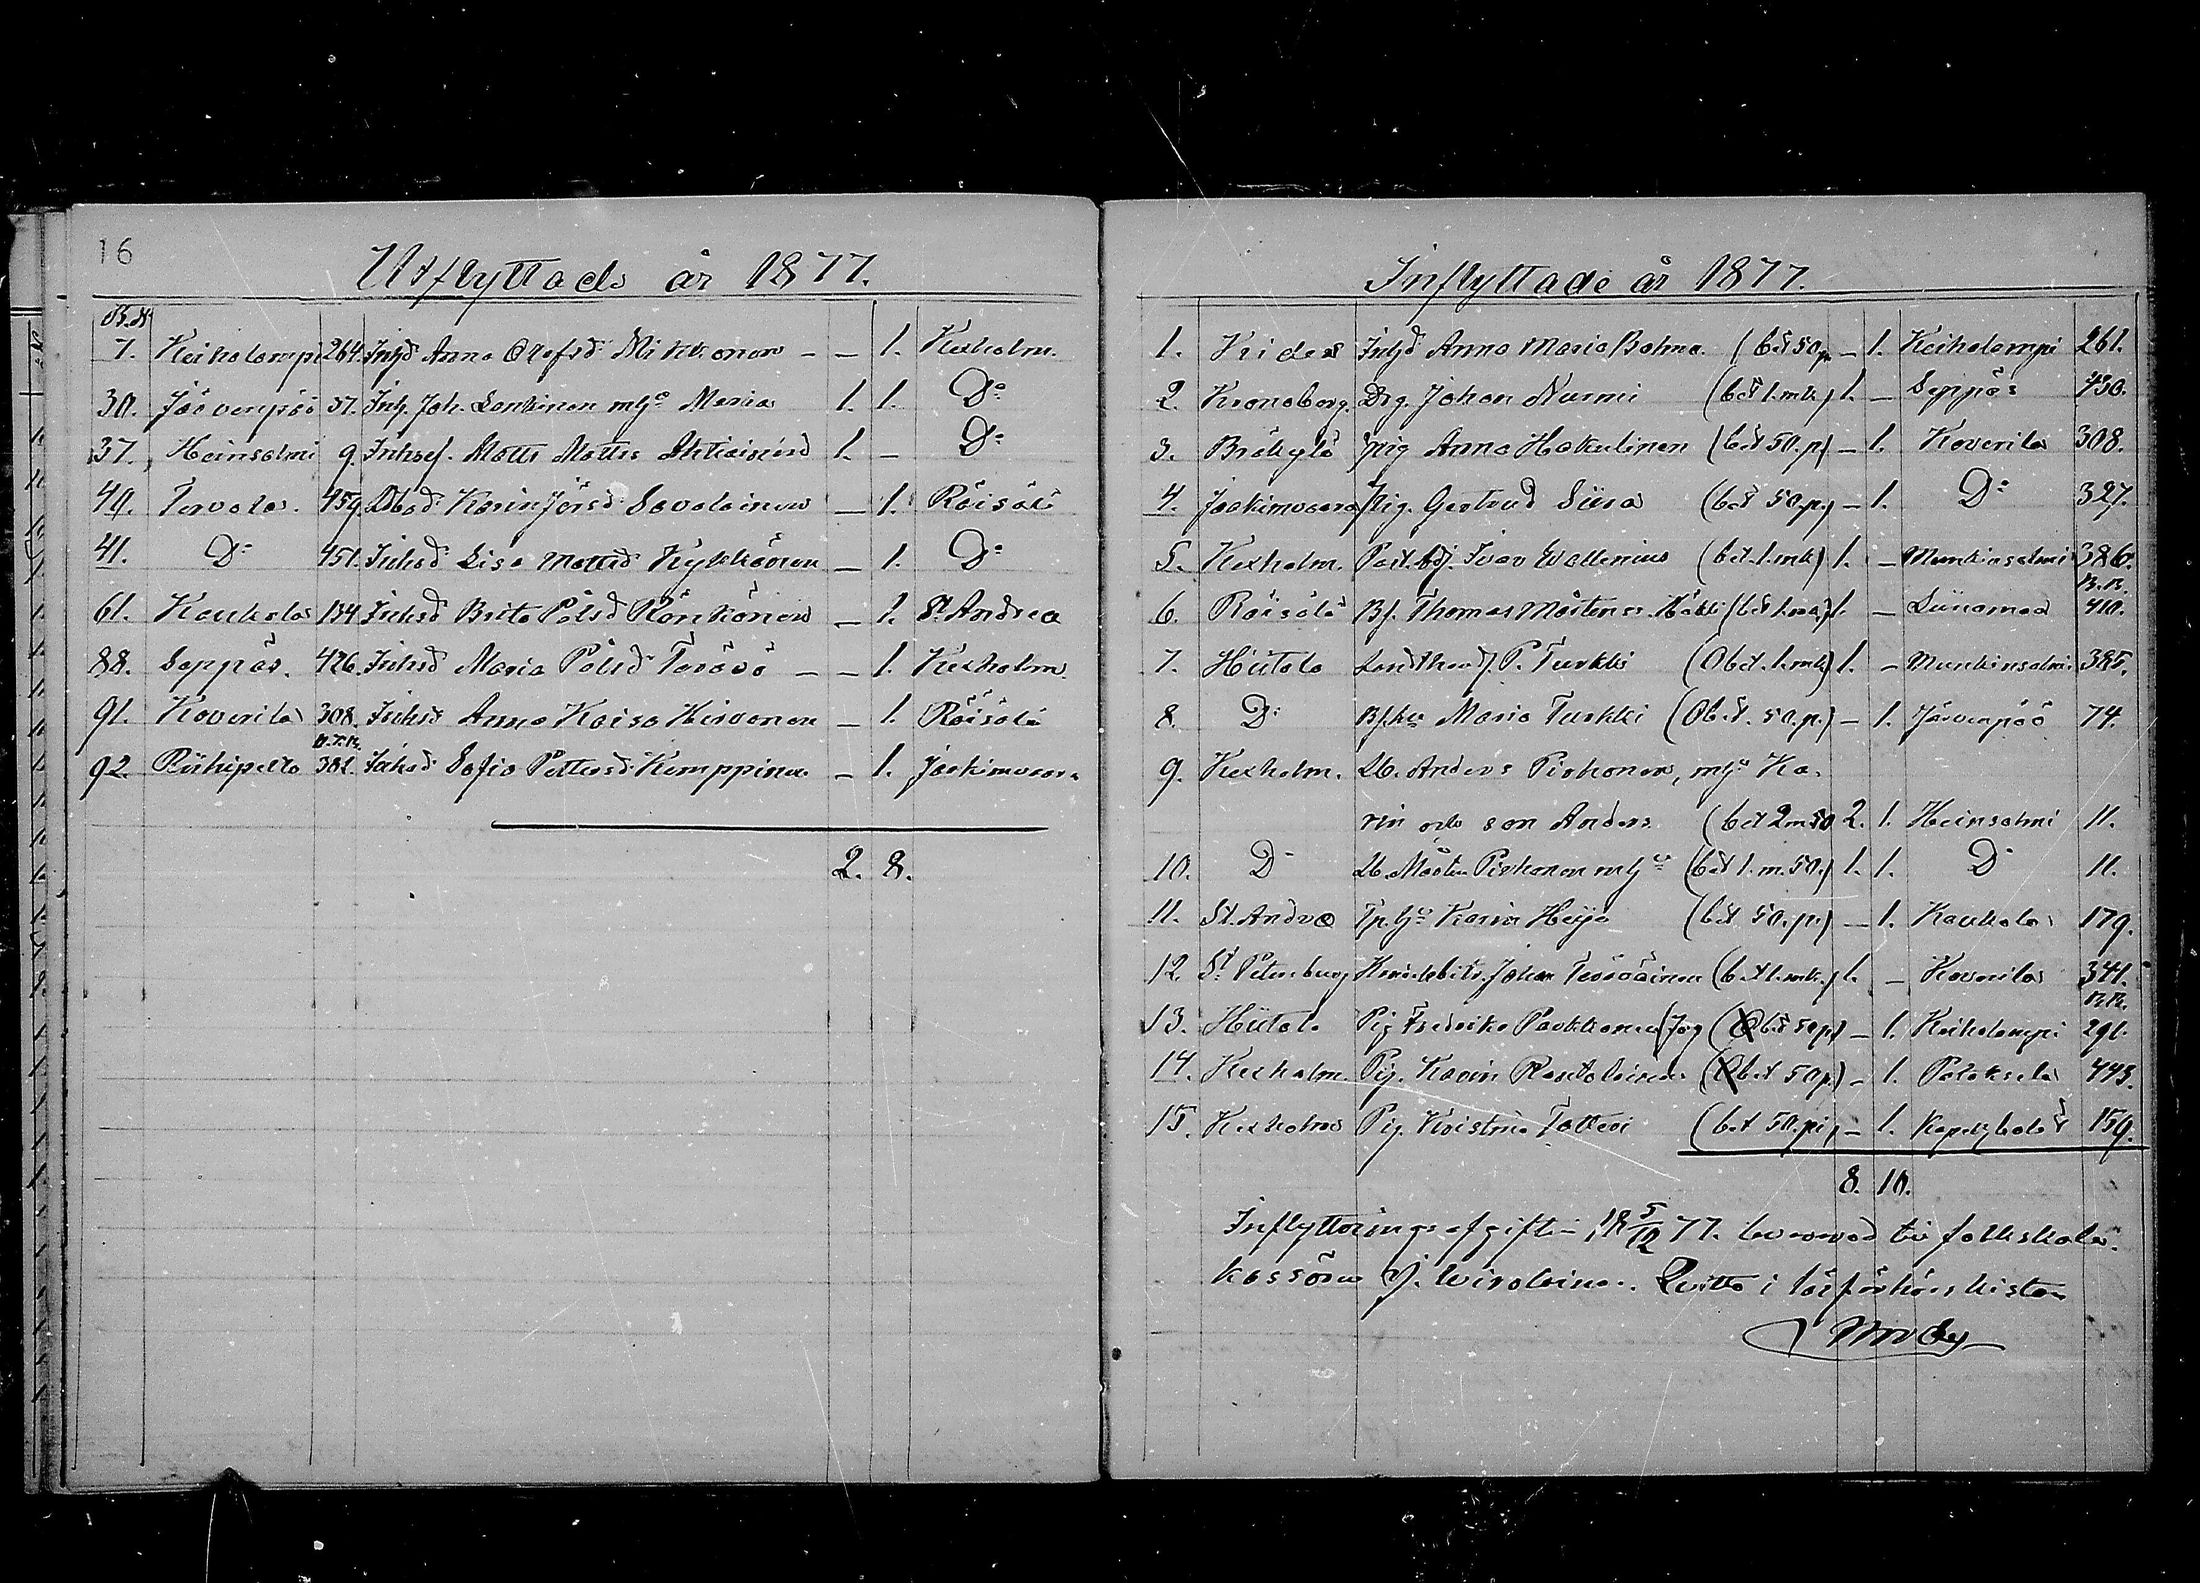 16
Utflyttade år 1877.
B.N
7. Keiholampi 264. Inhd Anna Olofsd Mikkonen - - 1. Kexholm.
30. Järvenpää 57. Inh. Joh. Lankinen mhu Maria 1. 1. Do
37. Heinsalmi 9. Inhsef. Matts Matts Ahtiainen 1. - Do
40. Tervola. 459. Karin Jörsd Savolainen - 1. Räisälä
41. Do 451. Inhsd Lisa Mattsd Kykkänen - 1. Do
61. Kaukola 134 Inhsd Brita Pålsd Rönkönen - 1. St Andrea
88. Seppäs. 426. Inhsd Maria Pålsd Torösö - - 1. Kexholm.
91. Koverila 308. Inhsd Anna Kaisa Hirvonen - 1. Räisälä
92. Riihipelto 382. Inhsd Sofia Pettersd Kemppinen - 1. Jaakimvaara
2. 8.
Inflyttade år 1877.
1. Kides Inhd Anna Maria Bohm. (bet 50 p. - 1. Keiholampi 261.
2. Kronoborg. Drg. Johan Nurmi (bet 1. mk) 1. - Seppäs 430.
3. Bräkylä Pig Anna Hakulinen (bet 50. p) - 1. Koverila 308.
4. Jaakimvaara Pig. Gertrud Siira (bet 50. p.) - 1. Do 327.
5. Kexholm. Ivar Wallenius (bet. 1. mk) 1. - Munkinsalmi 386.
B.B.
6. Räisälä Bf. Thomas Mårtenss. (bet 1. mk) 1. - Liinamaa 410.
7. Hiitola P. Turkki (Obet. 1. mk) 1. - Munkinsalmi 385.
8. Do Maria Turkki (Obet. 50. p.) - 1. Järvenpää 74.
9. Kexholm. Lb. Anders Pirhonen, mhu Ka-
rin och son Anders (bet 2 m 50 2. 1. Heinsalmi 11.
10. Do Lb. Mårten Pirhonen mhu (bet 1. m. 50.) 1. 1. Do 11.
11. St. Andræ Karin Heijo (bet 50. p.) - 1. Kaukola 179.
12. St Petersburg Johan Teräväinen (bet 1. mk.) 1. - Koverila 341.
13. Hiitola Pig Fredrika Parkkonen (Obet 50 p) - 1. Keiholampi 291.
14. Kexholm. Pig. Karin Rantalainen (Obet 50 p.) - 1. Potoksela 443.
15. Kexholm Pig. Kristina Tatteri (bet 50. pi) - 1. Kapakylä 159.
8. 10.
Inflyttningsafgiften 18 5/12 77. levererad till folkskole-
kassören J. Wirolainen. Qvitto i läsförhörs kistan